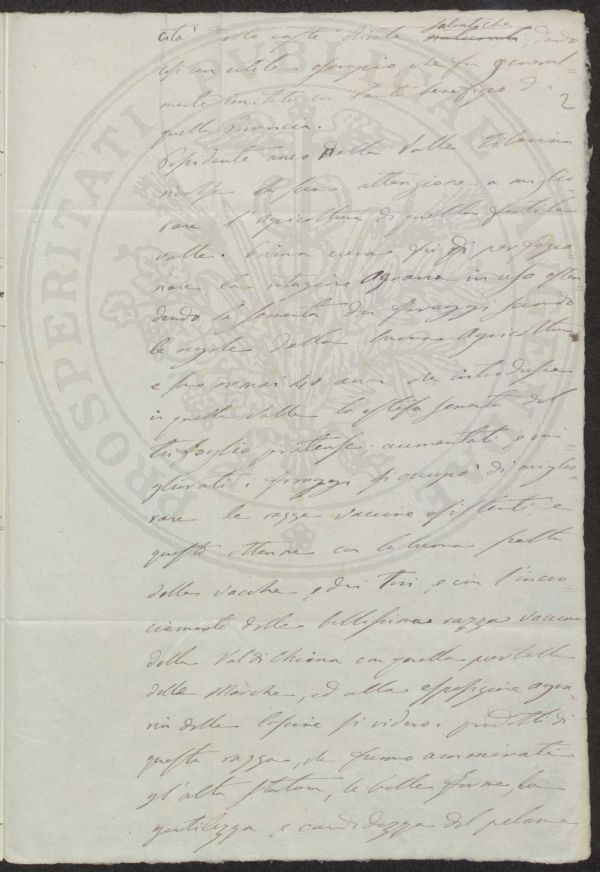 cità delle caste dirute salvatiche, dando
così un utile esempio che fu general-
mente imitato con tanto benefizio di
2
quella Provincia.
Possidente anco nella Valle
rivolse la sua attenzione a miglio-
rare l'agricoltura di quella fertile
valle. Prima cura fu di perfezio
nare la rotazione Agraria in uso esten
dendo la sementa dei foraggi secondo
le regole della buona Agricoltura
e sono ormai 40 anni che introdusse
in quella Valle la estesa sementa del
trifoglio pratense. aumentati e mi-
gliorati i foraggi si occupò di miglio-
rare le razze vaccine esistenti e
questo ottenne con la buona scelta
delle vacche, e dei Tori, e con l'incro-
ciamento della bellissima razza vaccina
della Val di Chiana con quella pur bella
delle Marche, ed alla esposizione agra-
ria delle si videro i prodotti di
questa razza, che furono ammirati
per l'alta statura, le belle forme, la
gentilezza e candidezza del pelame
PROSPERITATI PUBLICAE AUGENDAE